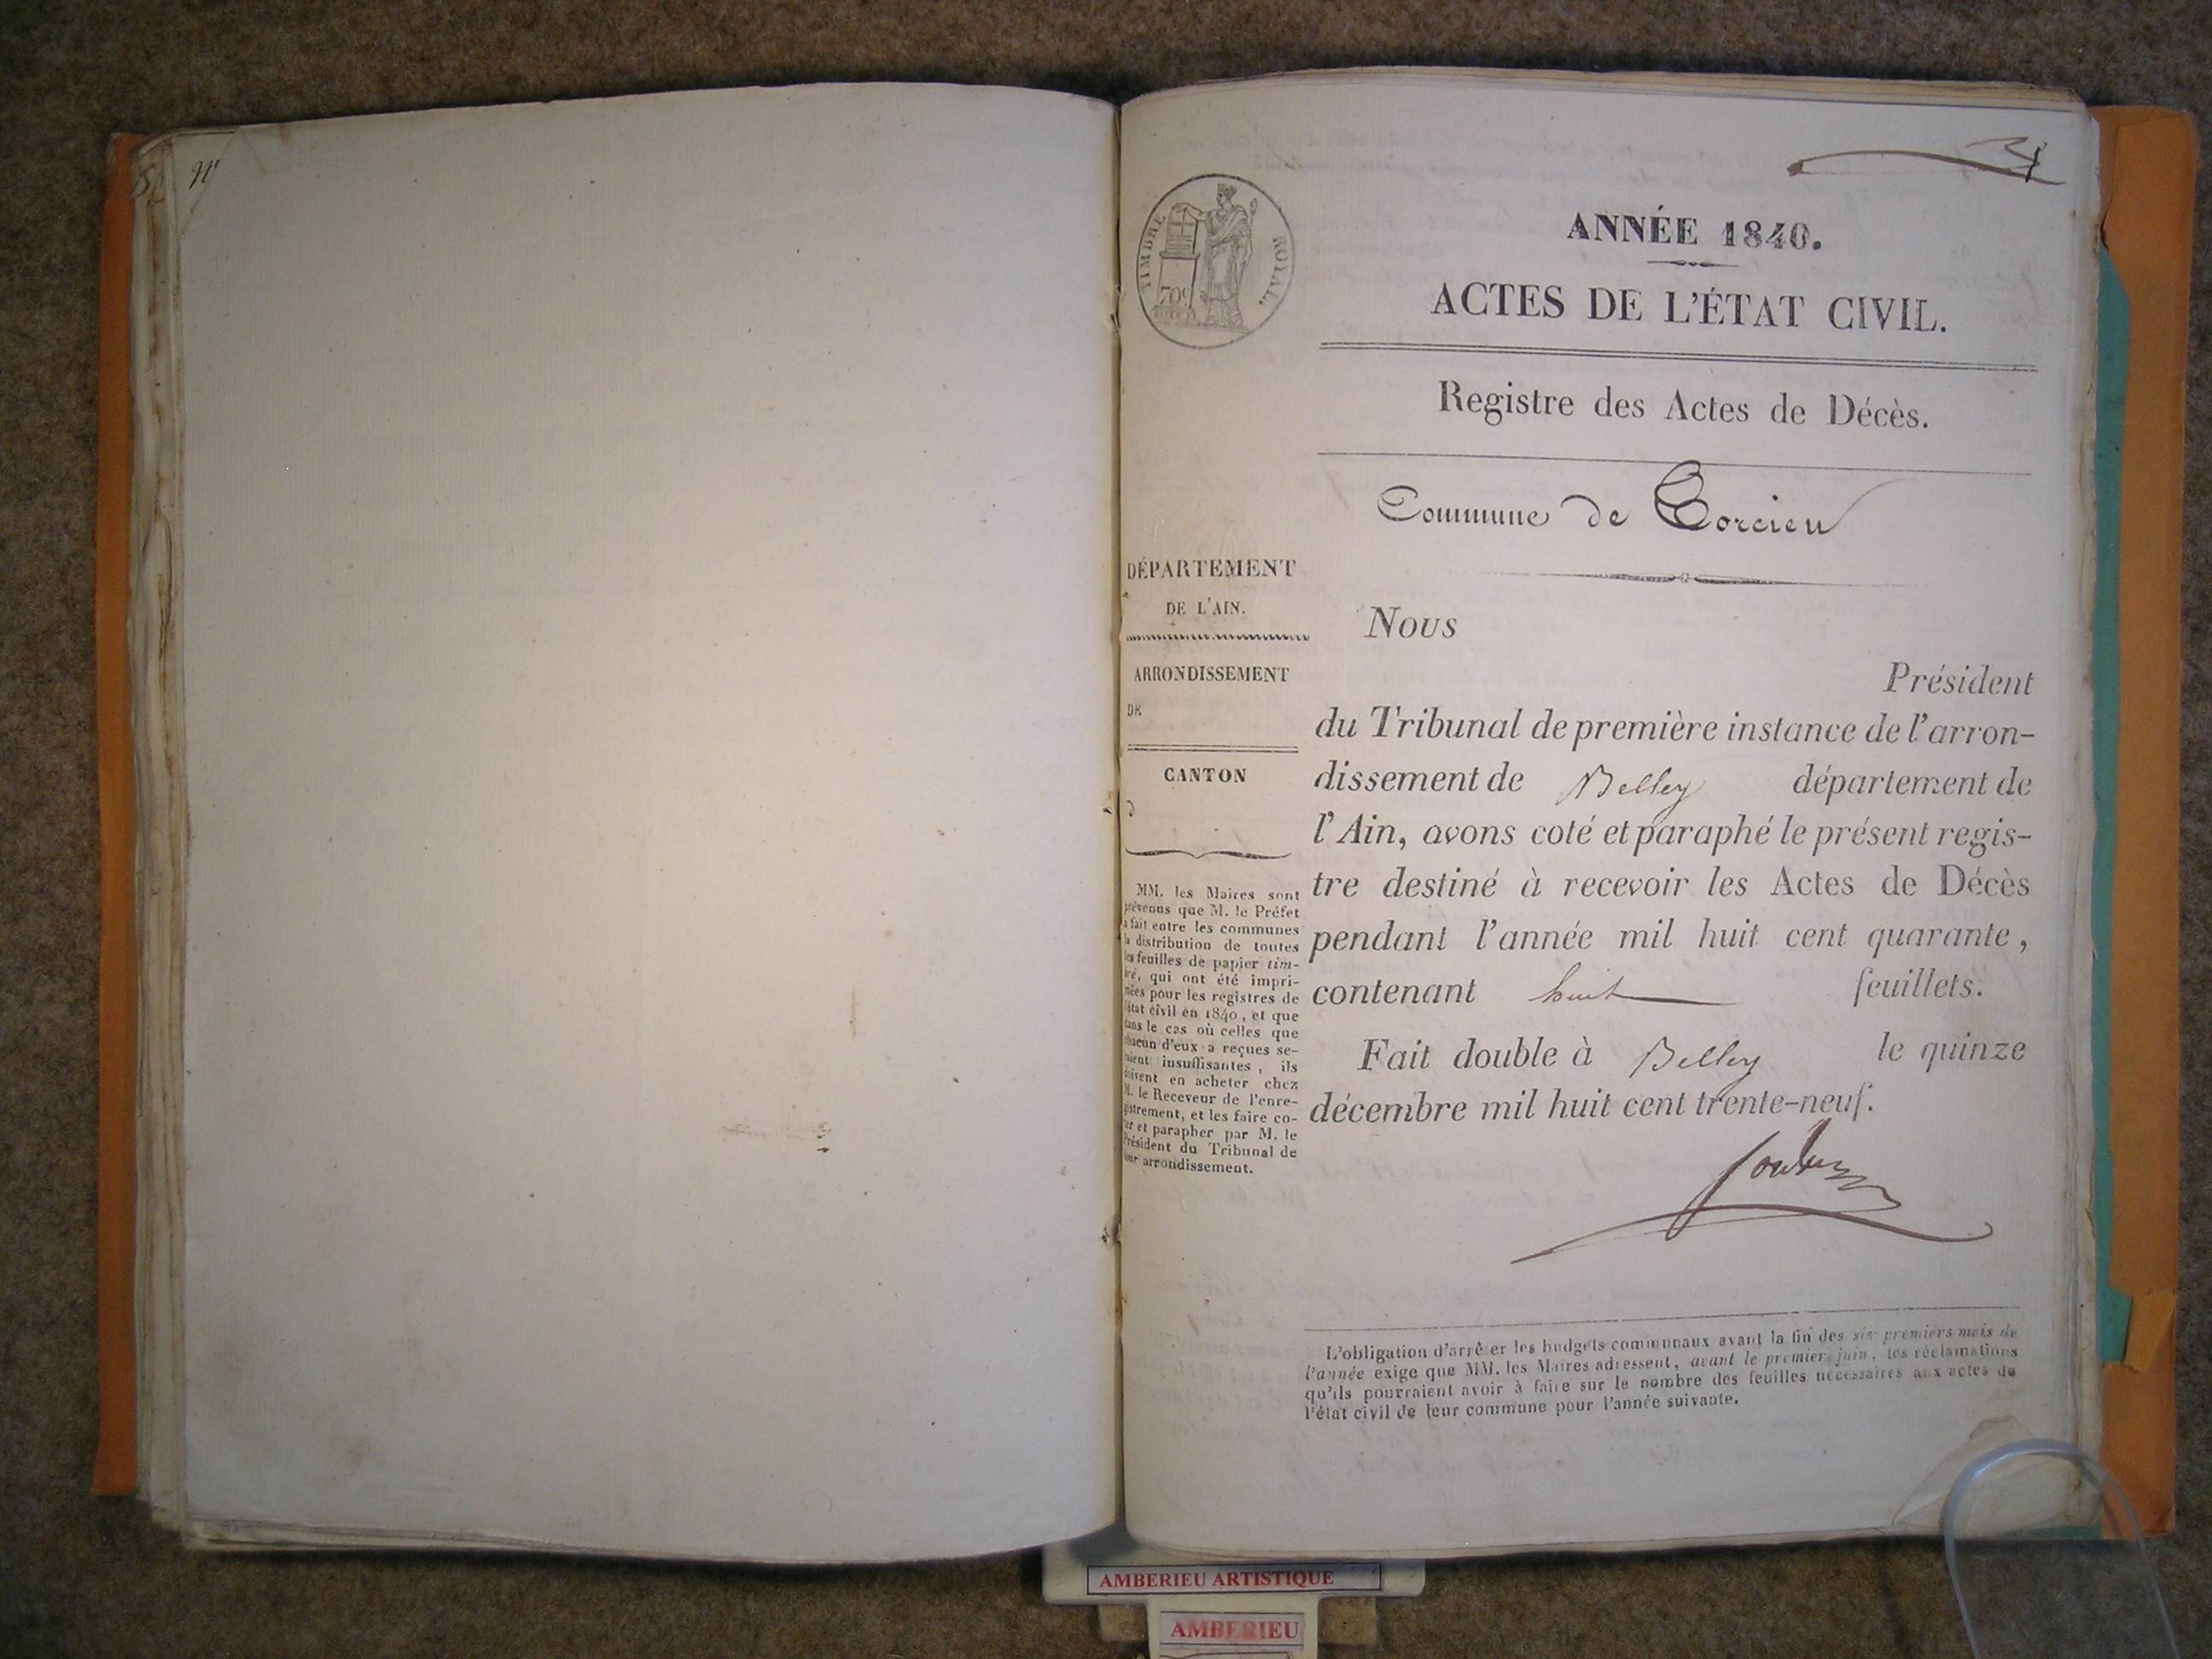 TIMBRE ROYAL.
ANNÉE 1840.
ACTES DE L'ÉTAT CIVIL.
Registre des Actes de Décès.
Commune de Torcieu
DÉPARTEMENT
DE L'AIN.
ARRONDISSEMENT
DE
CANTON
MM. les Maires sont
prévenus que M. le Préfet
a fait entre les communes
la distribution de toutes
les feuilles de papier tim-
bré, qui ont été impri-
mées pour les registres de
l'état civil en 1840, et que
dans le cas où celles que
chacun d'eux a reçues se-
raient insuffisantes, ils
doivent en acheter chez
M. le Receveur de l'enre-
gistrement, et les faire co-
ter et parapher par M. le
Président du Tribunal de
leur arrondissement.
Nous
Président
du Tribunal de première instance de l'arron-
dissement de Belley département de
l'Ain, avons coté et paraphé le présent regis-
tre destiné à recevoir les Actes de Décès
pendant l'année mil huit cent quarante,
contenant huit feuillets.
Fait double à Belley le quinze
décembre mil huit cent trente-neuf.
L'obligation d'arrêter les budgets communaux avant la fin des six premiers mois de
l'année exige que MM. les Maires adressent, avant le premier juin, les réclamations
qu'ils pourraient avoir à faire sur le nombre des feuilles nécessaires aux actes de
l'état civil de leur commune pour l'année suivante.
AMBERIEU ARTISTIQUE
AMBERIEU